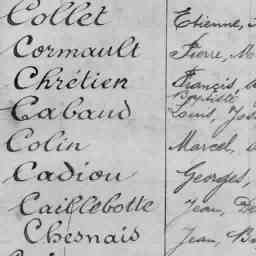 Collet Etienne,
Cormault Pierre, M
Chrétien Francis,
Baptiste
Cabaud Louis, Jos
Colin Marcel,
Cadiou Georges,
Caillebotte Jean,
Chesnais Jean, Ba